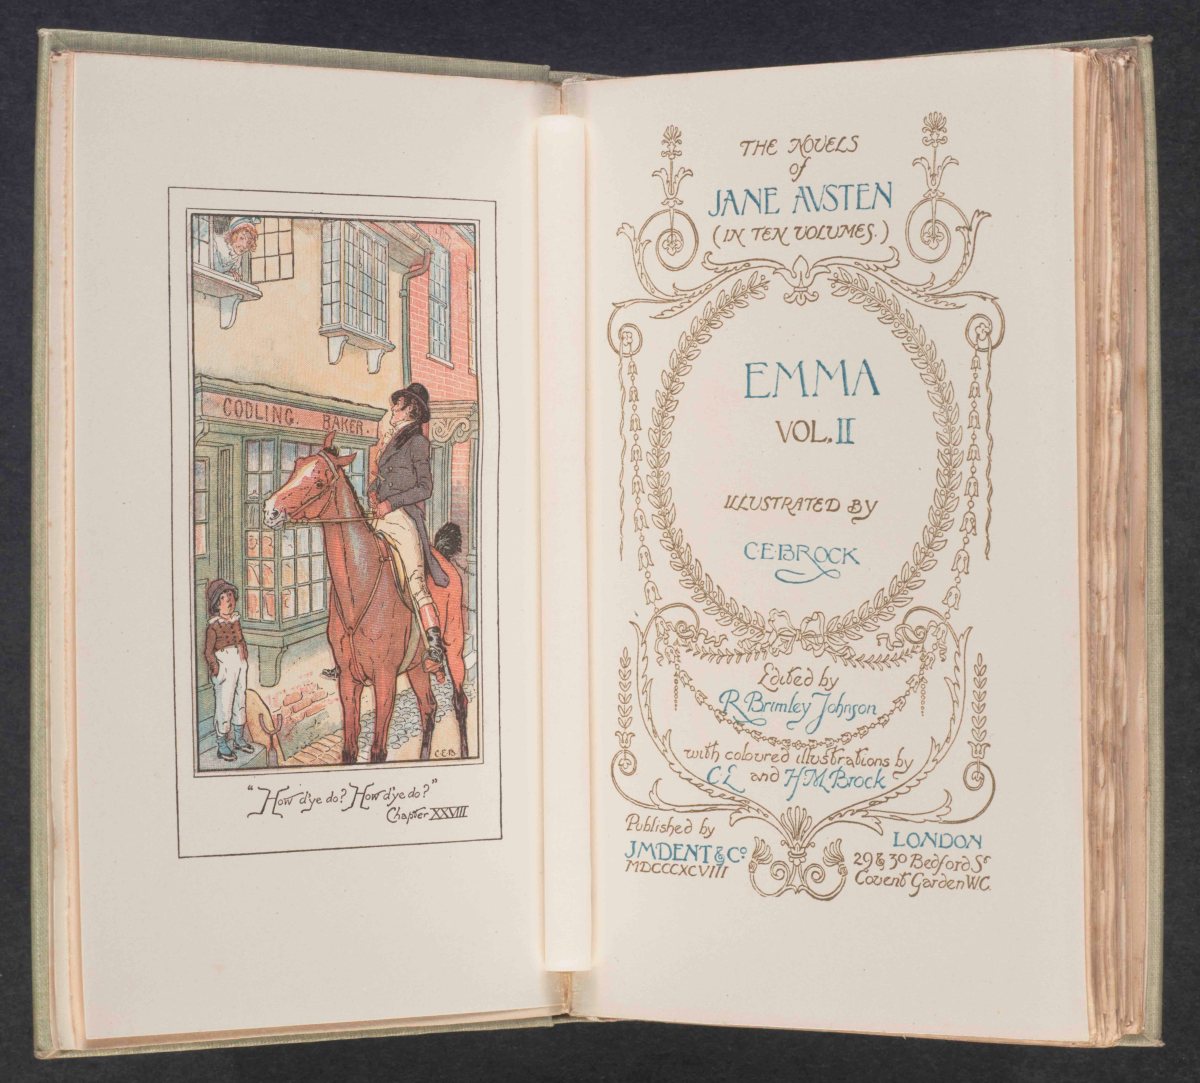 CODLING. BAKER.
C.E.B.
"How d'ye do? How d'ye do?"
Chapter XXVIII
THE NOVELS
of
JANE AVSTEN
(IN TEN VOLUMES.)
EMMA
VOL. II
ILLUSTRATED BY
C.E.BROCK
Edited by
R Brimley Johnson
with coloured illustrations by
C E and H M Brock
Published by
J M DENT & Co.
MDCCCXCVIII
LONDON
29 & 30 Bedford St
Covent Garden W.C.